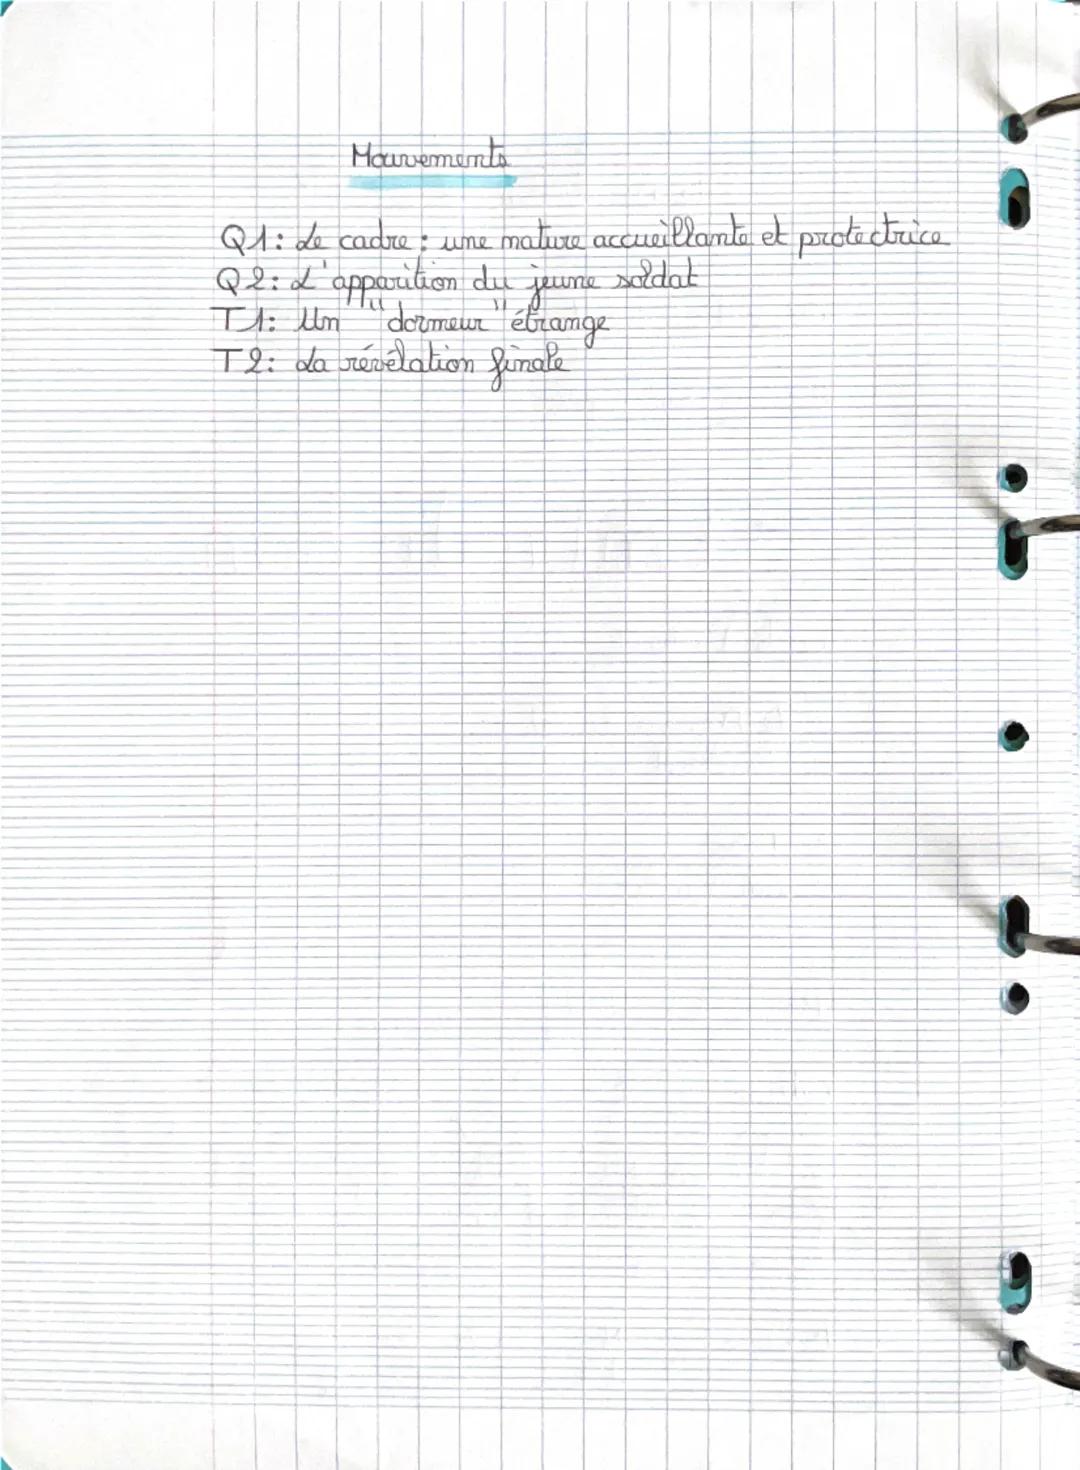 Mouvements
Q1: Le cadre : une nature accueillante et protectrice
Q2: L'apparition du jeune soldat
T1: Un "dormeur" étrange
T2: La révélation finale